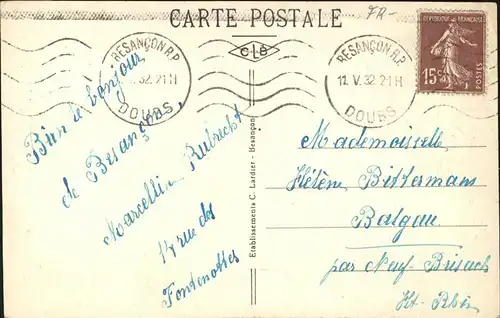 CARTE POSTALE
FR-
CLB
BESANÇON R.P.
V. 32. 21 H
DOUBS
BESANÇON R.P.
11. V. 32. 21 H
DOUBS
REPUBLIQUE FRANÇAISE
15 c
POSTES
Bien le bonjour
de Besançon,
Marcelline Rubrecht
14 rue des
Fontenottes
Etablissements C. Lardier - Besançon
Mademoiselle
Hélène Bittermans
Balgau
par Neuf-Brisach
Ht-Rhin